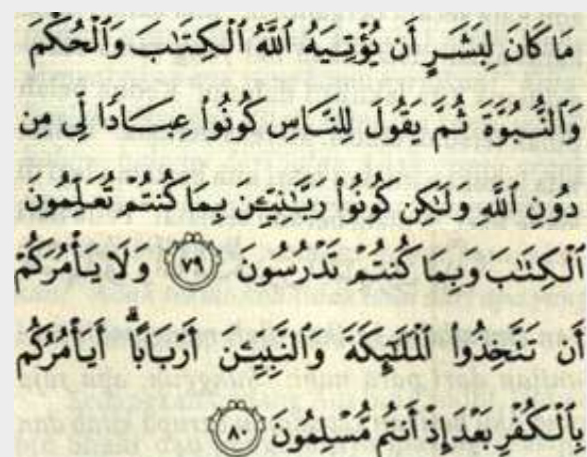 مَا كَانَ لِبَشَرٍ أَن يُؤْتِيَهُ اللَّهُ الْكِتَٰبَ وَالْحُكْمَ
وَالنُّبُوَّةَ ثُمَّ يَقُولَ لِلنَّاسِ كُونُوا۟ عِبَادًا لِّى مِن
دُونِ اللَّهِ وَلَٰكِن كُونُوا۟ رَبَّٰنِيِّۦنَ بِمَا كُنتُمْ تُعَلِّمُونَ
الْكِتَٰبَ وَبِمَا كُنتُمْ تَدْرُسُونَ ٧٩ وَلَا يَأْمُرَكُمْ
أَن تَتَّخِذُوا۟ الْمَلَٰٓئِكَةَ وَالنَّبِيِّۦنَ أَرْبَابًا ۗ أَيَأْمُرُكُم
بِالْكُفْرِ بَعْدَ إِذْ أَنتُم مُّسْلِمُونَ ٨٠